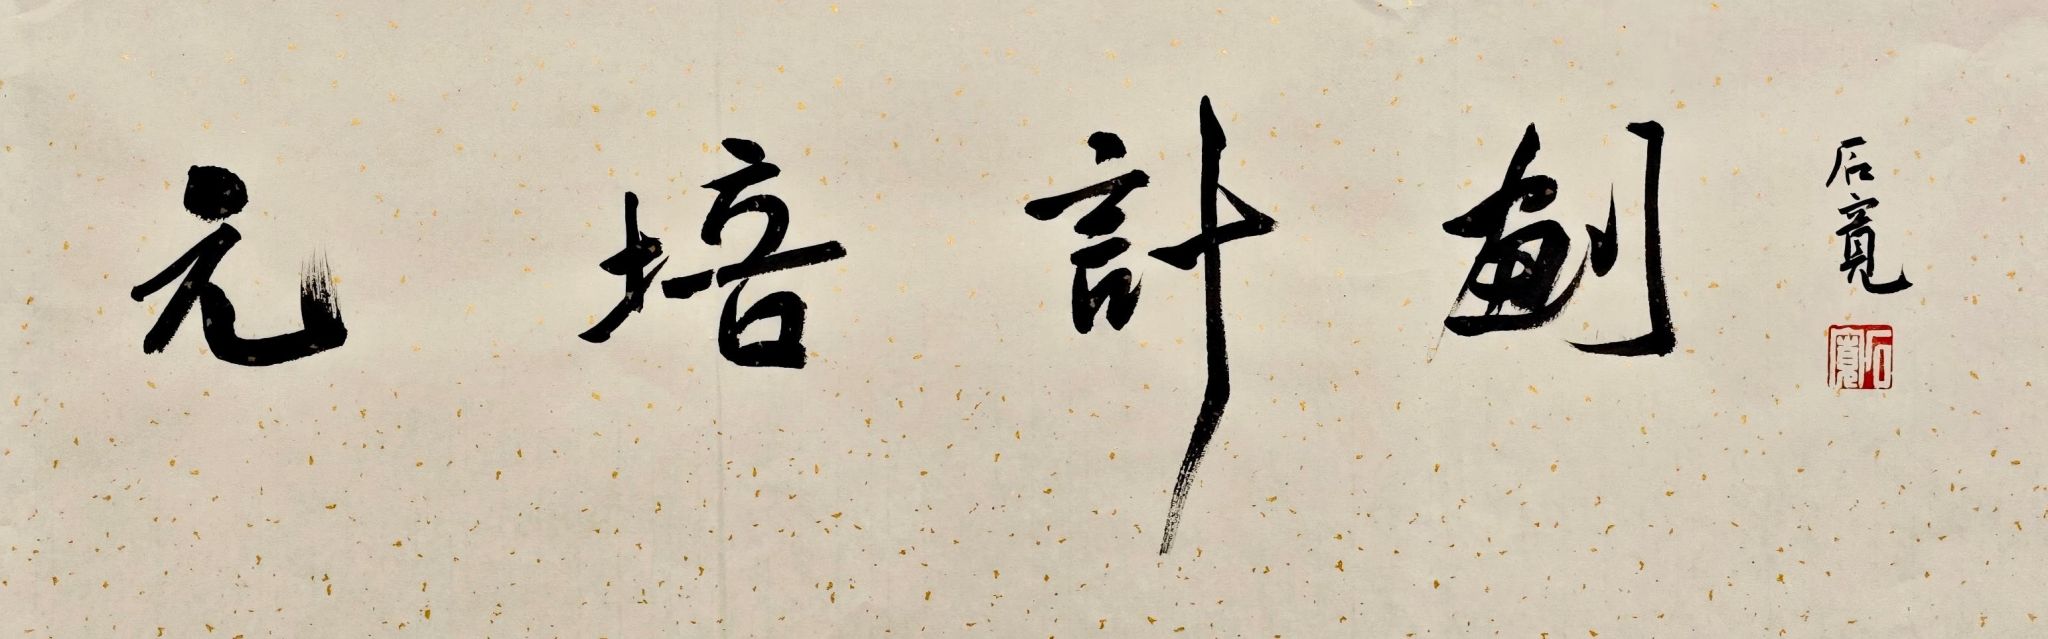 元培計劃
石寬
石寬